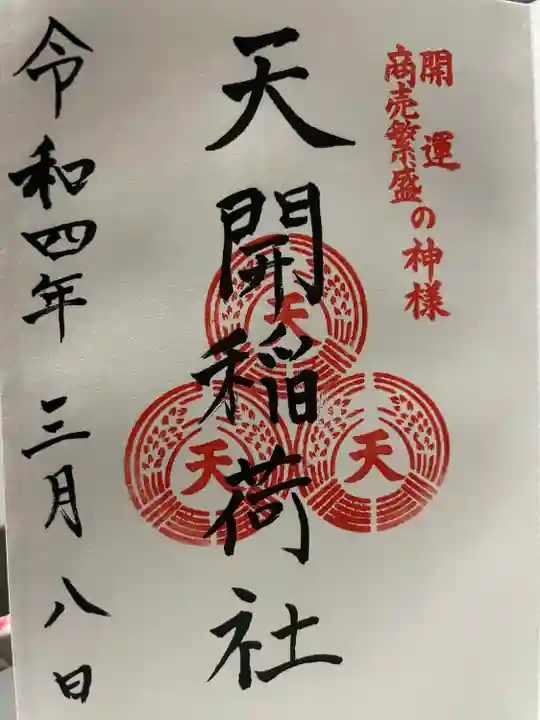 開運
商売繁盛の神様
天開稲荷社
天
天
天
令和四年三月八日